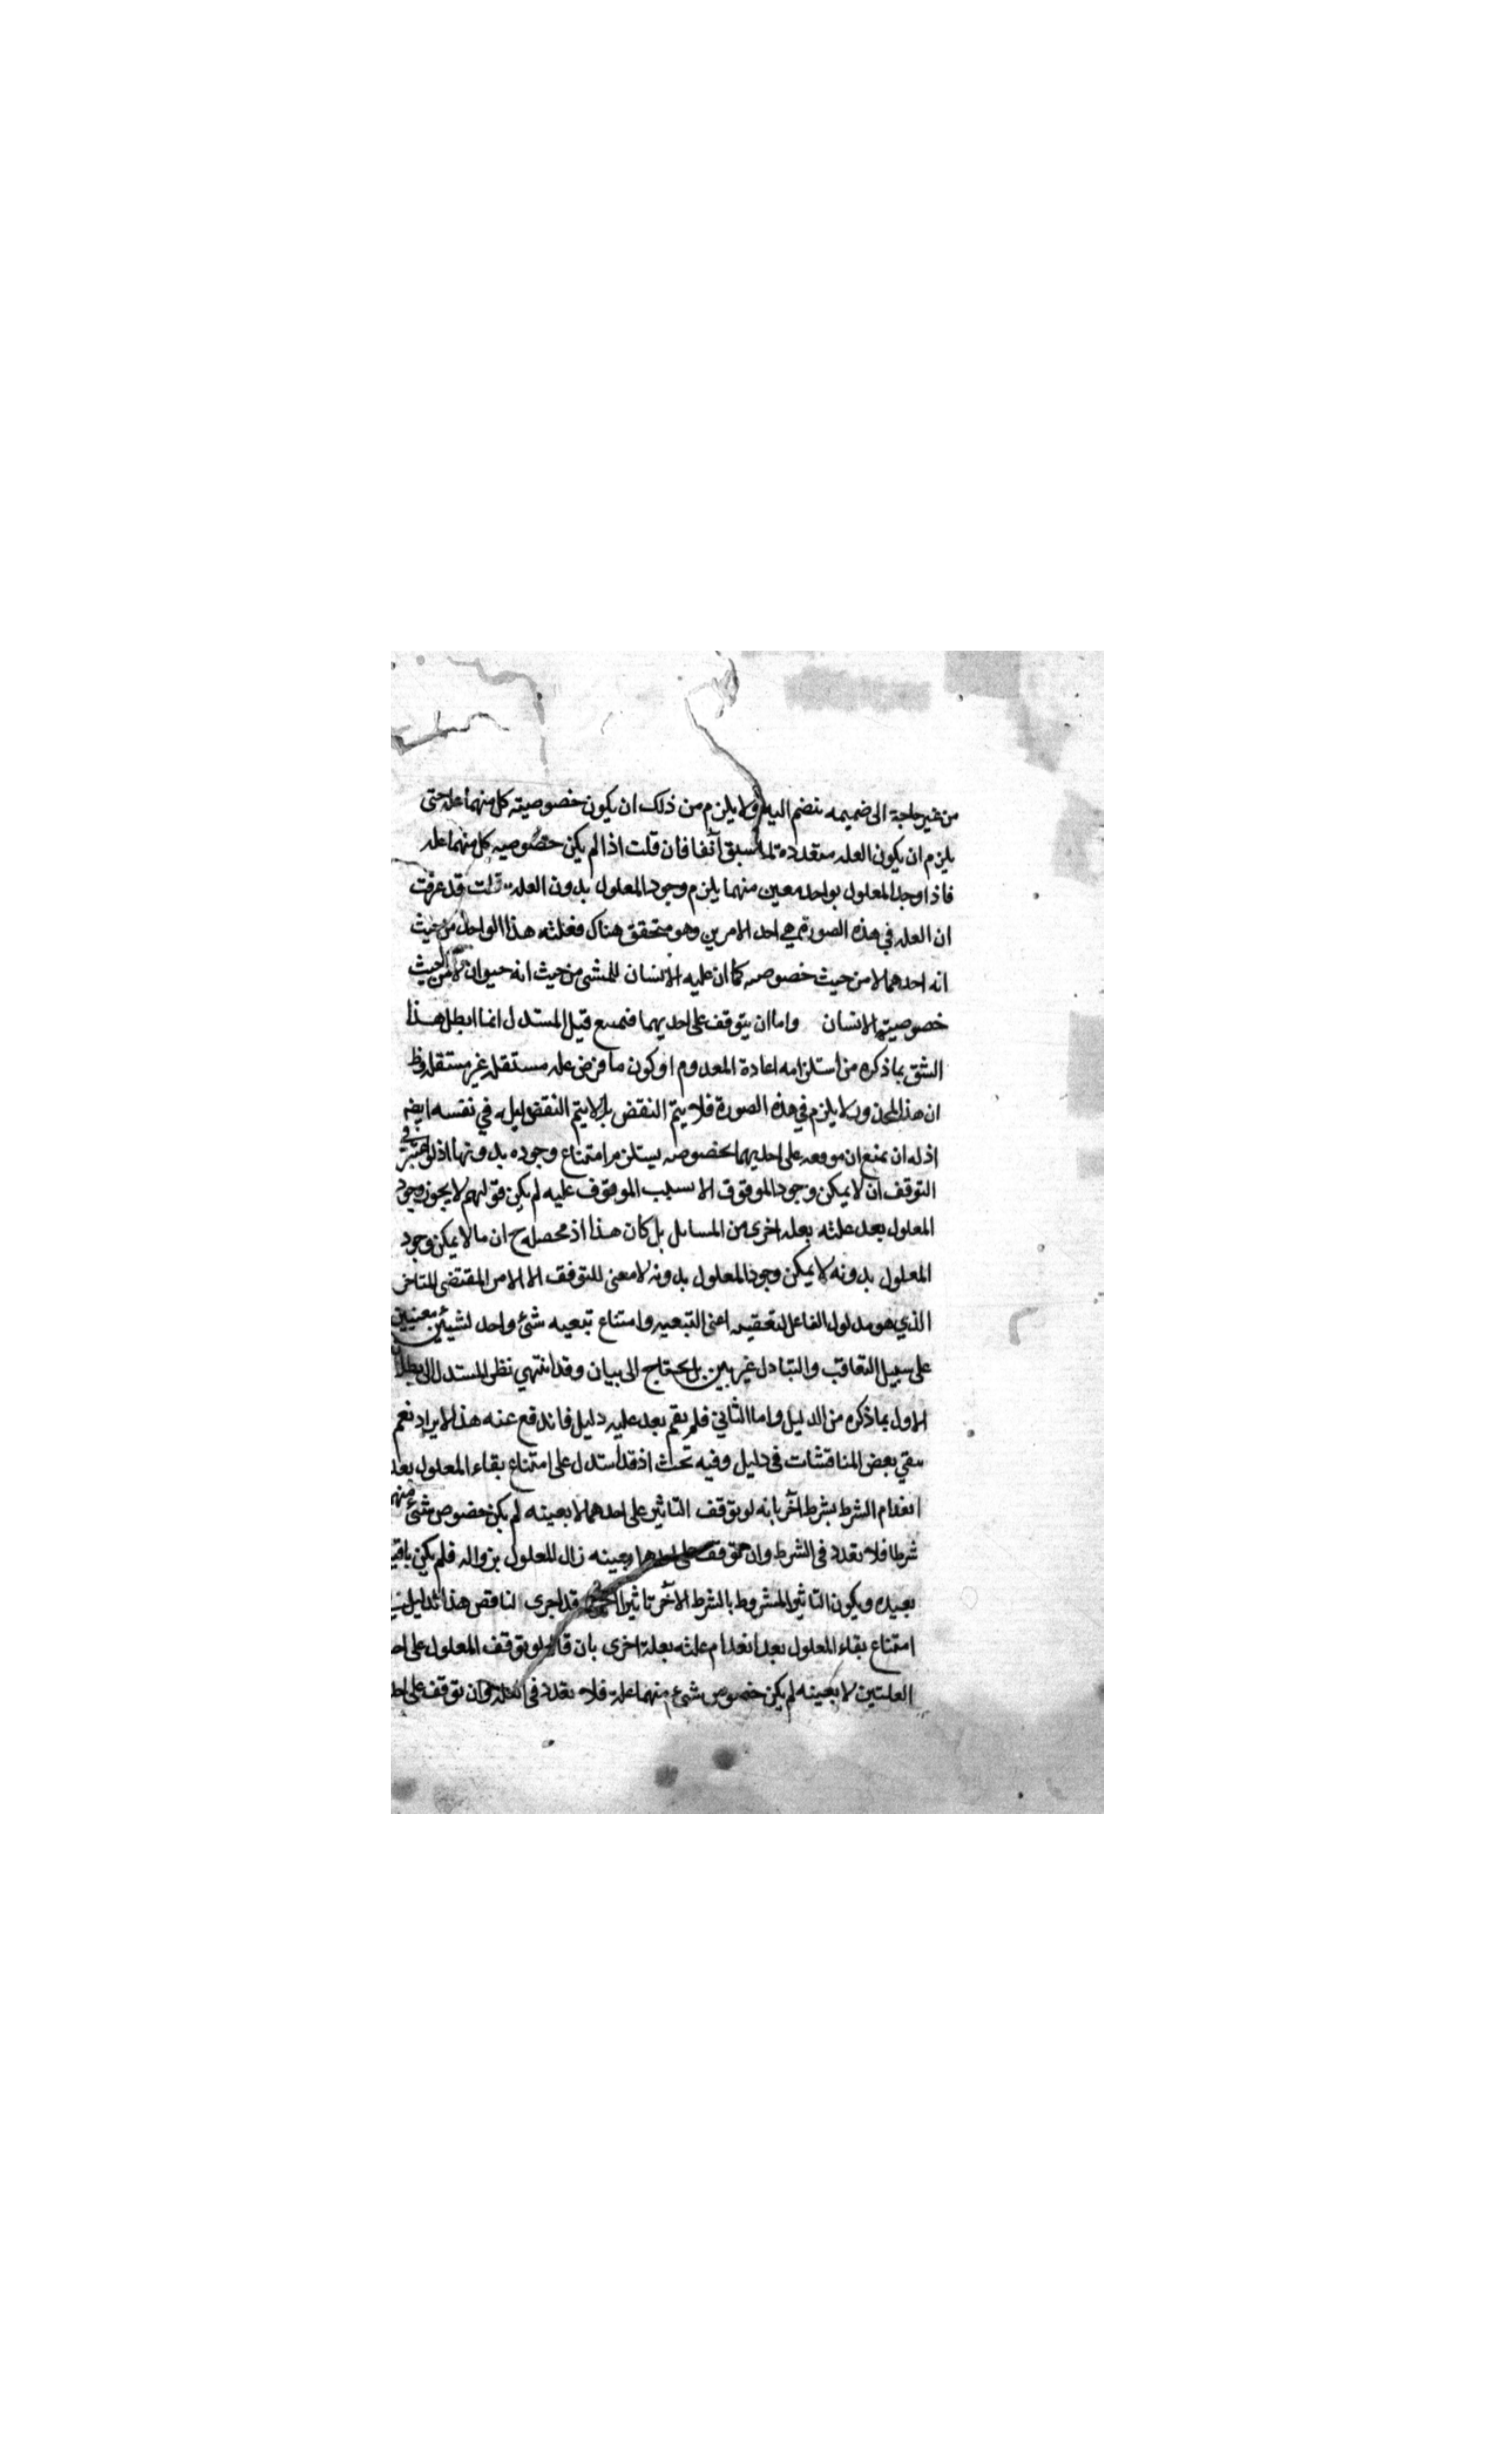 من غير حاجة الى ضميمه تنضم اليه ولا يلزم من ذلك ان يكون خصوصيته كل منهما عله حتى
يلزم ان يكون العله متعدده لما سبق آنفا فان قلت اذا لم يكن خصوصيه كل منهما عله
فاذا وجد المعلول بواحد معين منهما يلزم وجود المعلول بدون العله قلت قد عرفت
ان العله في هذه الصورة هي احد الامرين وهو متحقق هناك فعلته هذا الواحد من حيث
انه احدهما لا من حيث خصوصه كما ان عليه الانسان للمشى من حيث انه حيوان لا من حيث
خصوصيته الانسان واما ان يتوقف على احديهما فنمنع قيل المستدل انما ابطل هذا
الشق بما ذكره من استلزامه اعادة المعدوم او كون ما فرض عله مستقله غير مستقله وظ
ان هذا المحذور لا يلزم في هذه الصورة فلا يتم النقض بل لا يتم النقض في نفسه ايضم
اذ له ان يمنع ان موقعه على احديهما بخصوصه يستلزم امتناع وجوده بدونها اذ لو
التوقف ان لا يمكن وجود الموقوف الا بسبب الموقوف عليه لم يكن قولهم لا يجوز وجود
المعلول بعد علته بعله اخرى من المسائل بل كان هذا اذ محصله ح ان ما لا يمكن وجود
المعلول بدونه لا يمكن وجود المعلول بدونه لا معنى للتوقف الا الامر المقتضى للتاخر
الذي هو مدلول الفاء التعقيبيه اعنى التبعيه وامتناع تبعيه شئ واحد لشيئين معينين
على سبيل التعاقب والتبادل غير بين بل يحتاج الى بيان وقد انتهى نظر المستدل الى
الاول بما ذكره من الدليل واما الثاني فلم يقم بعد عليه دليل فاندفع عنه هذا الايراد نعم
بقي بعض المناقشات في دليل وفيه بحث اذ قد استدل على امتناع بقاء المعلول بعد
انعدام الشرط بشرط آخر بانه لو توقف التاثير على احدهما لا بعينه لم يكن خصوص شئ منهما
شرطا فلا تعدد في الشرط وان توقف على احدهما بعينه زال المعلول بزواله فلم يكن باقيا
بعيده ويكون التاثير المشروط بالشرط الآخر تاثيرا قد اجرى الناقض هذا الدليل
امتناع بقاء المعلول بعد انعدام علته بعلة اخرى بان قال لو توقف المعلول على
العلتين لا بعينه لم يكن خصوص شئ منهما علة فلا تعدد في العله وان توقف على